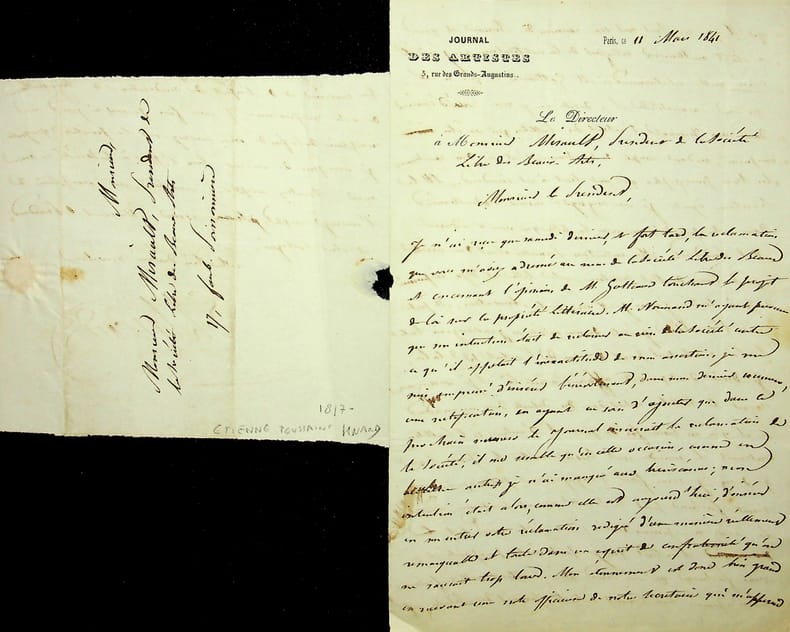 Monsieur
Monsieur Mirault, Président de
la Société libre des Beaux Arts
17, faub. Poissonnière
1817-
ETIENNE TOUSSAINT
JOURNAL
DES ARTISTES
5, rue des Grands-Augustins.
Paris, ce 11 Mars 1841
Le Directeur
à Monsieur Mirault, Président de la Société
Libre des Beaux Arts,
Monsieur le Président,
Je n'ai reçu que samedi dernier, et fort tard, la réclamation
que vous m'avez adressée au nom de la Société Libre des Beaux
et concernant l'opinion de M. touchant le projet
de loi sur la propriété littéraire. M. Normand m'ayant prévenu
que son intention était de réclamer au sein de la Société contre
ce qu'il appelait l'inexactitude de mon assertion, je me
suis empressé d'insérer bénévolement, dans mon dernier numéro,
une rectification, en ayant eu soin d'ajouter que dans le
prochain numéro le journal insérerait la réclamation de
la Société; il me semble qu'en cette occasion, comme en
toute autre je n'ai manqué aux ; mon
intention était alors, comme elle est aujourd'hui, d'insérer
en entier votre réclamation rédigée d'une manière réellement
remarquable et dans un esprit de confraternité qu'on
ne saurait trop louer. Mon étonnement est donc bien grand
en recevant une note officieuse de notre secrétaire qui m'apprend